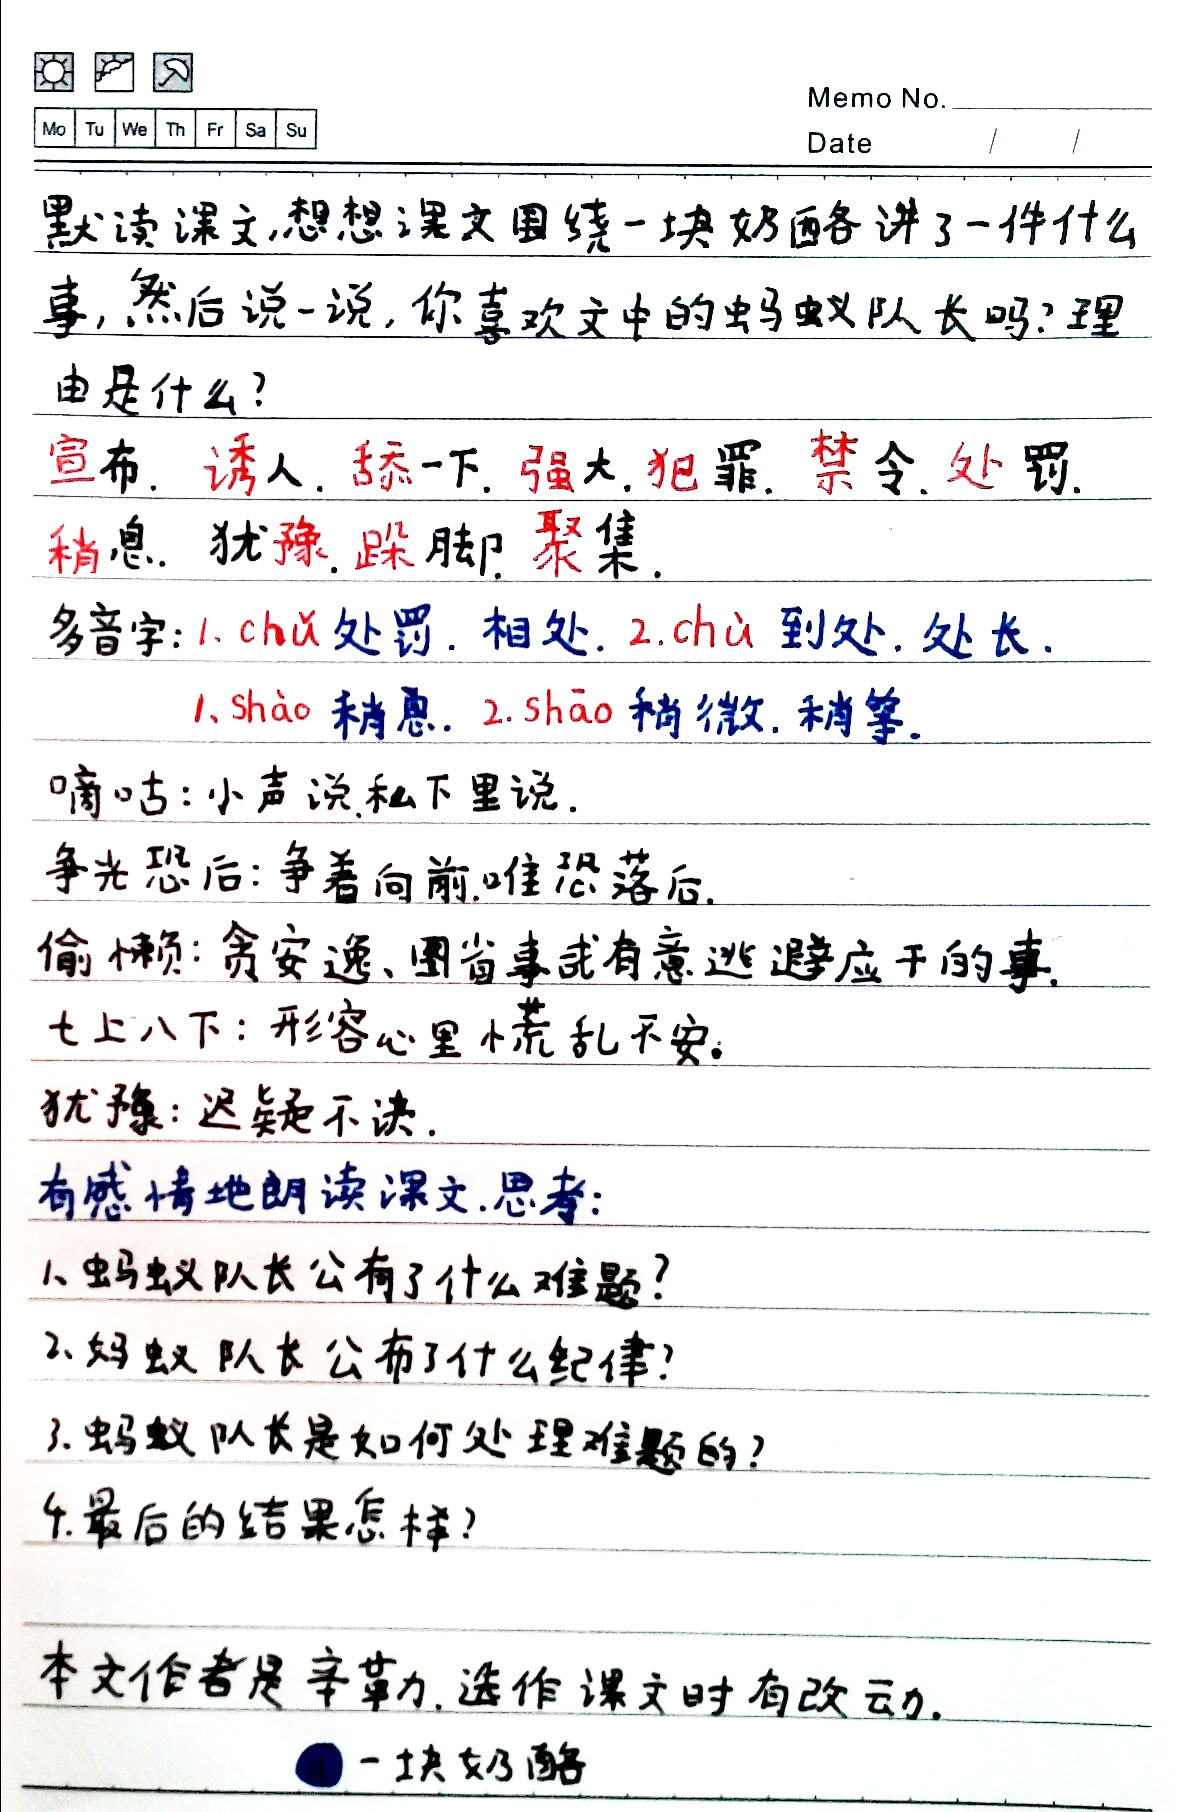 Memo No.
Mo Tu We Th Fr Sa Su
Date / /
默读课文,想想课文围绕一块奶酪讲了一件什么
事,然后说一说,你喜欢文中的蚂蚁队长吗?理
由是什么?
宣布. 诱人. 舔一下. 强大. 犯罪. 禁令. 处罚.
稍息. 犹豫. 跺脚. 聚集.
多音字: 1. chǔ 处罚. 相处. 2. chù 到处. 处长.
1、shào 稍息. 2. shāo 稍微. 稍等.
嘀咕: 小声说.私下里说.
争先恐后: 争着向前.唯恐落后.
偷懒: 贪安逸、图省事或有意逃避应干的事.
七上八下: 形容心里慌乱不安。
犹豫: 迟疑不决.
有感情地朗读课文.思考:
1、蚂蚁队长公布了什么难题?
2、蚂蚁队长公布了什么纪律?
3. 蚂蚁队长是如何处理难题的?
4. 最后的结果怎样?
本文作者是辛勤.选作课文时有改动.
一块奶酪